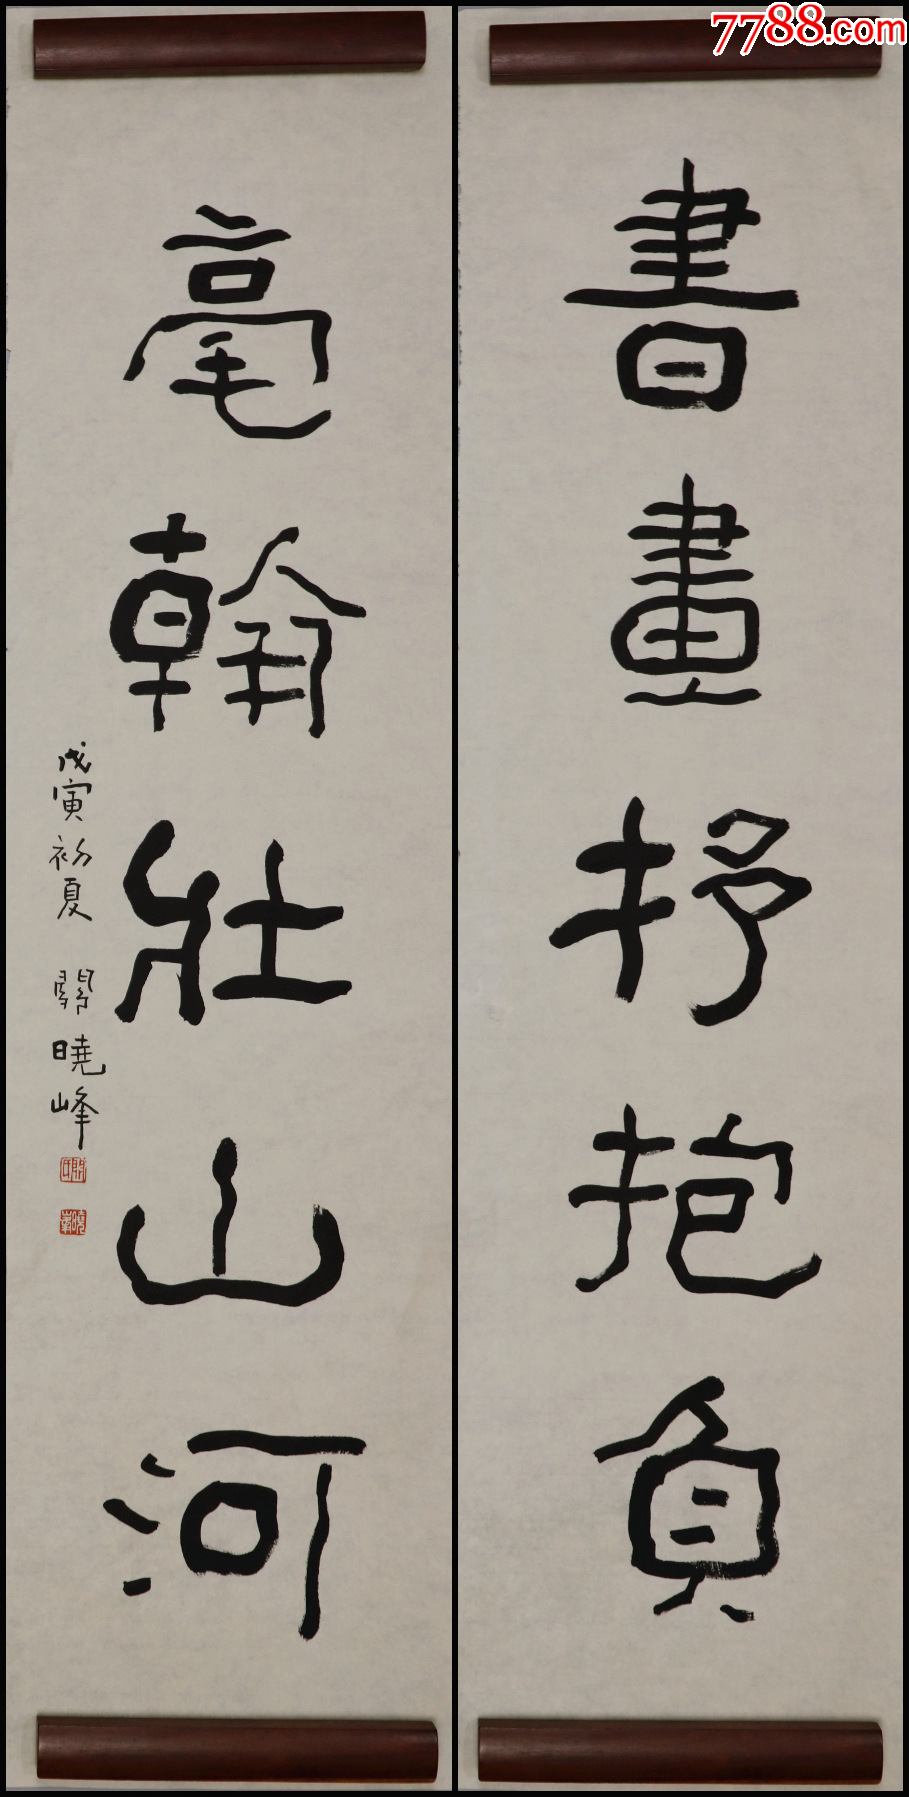 7788.com
書畫抒抱負
毫翰壯山河
戊寅初夏 關曉峰